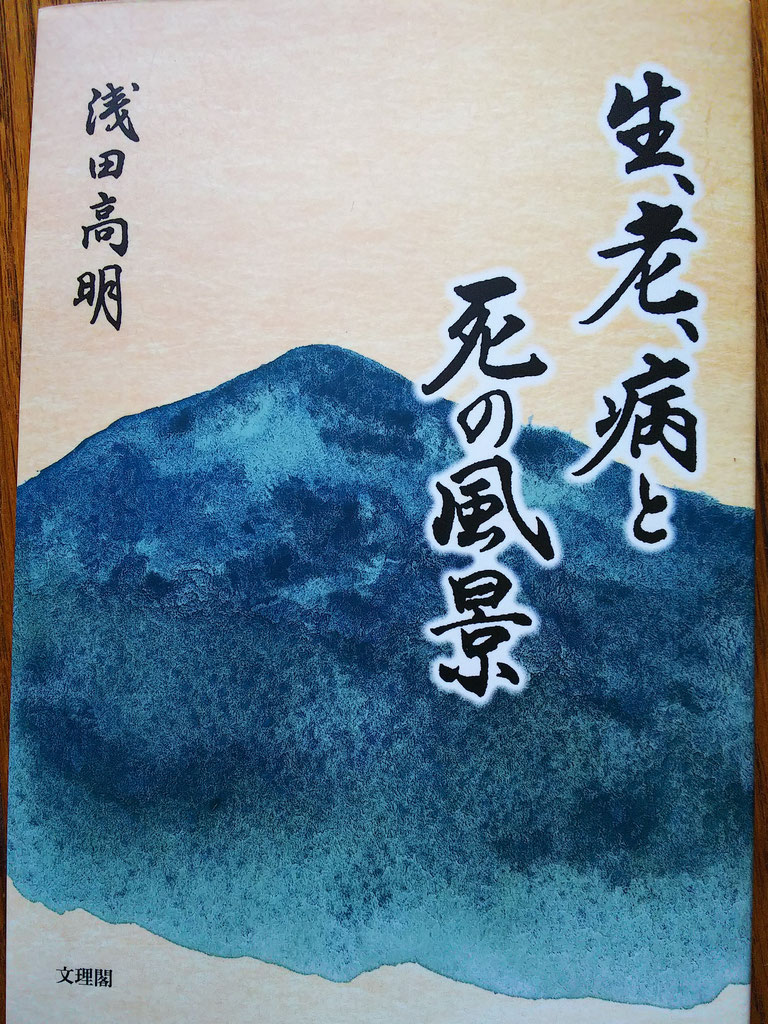 生、老、病と
死の風景
浅田高明
文理閣